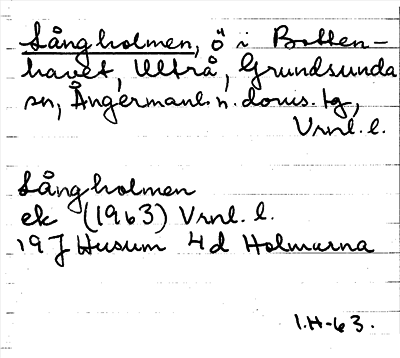 Långholmen, ö i Botten-
havet, Ultrå, Grundsunda
sn, Ångermanl. n. doms. tg,
Vrnl. l.
Långholmen
ek (1963) Vrnl. l.
19J Husum 4d Holmarna
1.H-63.